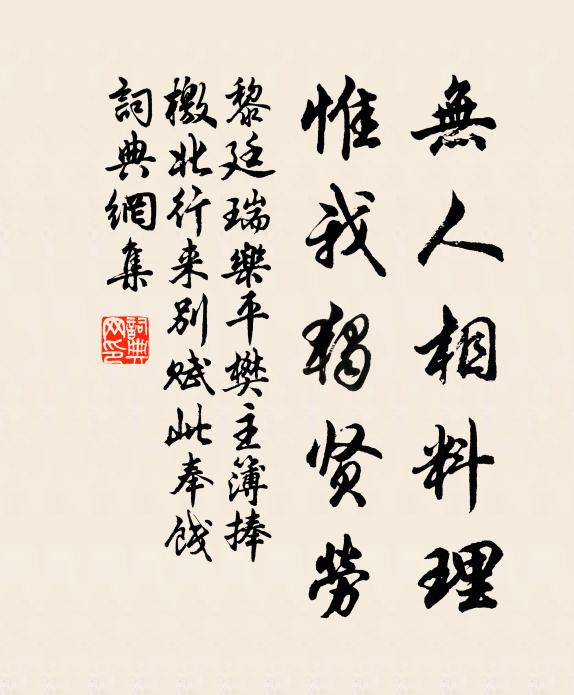 無人相料理
惟我獨贤勞
黎廷瑞樂平樊主簿捧
檄北行来别赋此奉餞
詞典網集
詞典
网印